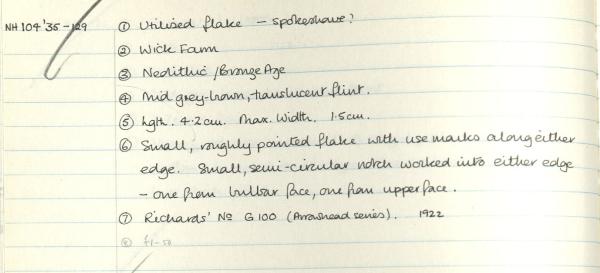 NH 104'35-129 ① Utilised flake - spokeshave?
② Wick Farm
③ Neolithic / Bronze Age
④ Mid grey-brown, translucent flint.
⑤ Lgth. 4.2cm. Max. Width. 1.5cm.
⑥ Small, roughly pointed flake with use marks along either
edge. Small, semi-circular notch worked into either edge
- one from bulbar face, one from upper face.
⑦ Richards' No G100 (Arrowhead series). 1922
⑧ £1-50